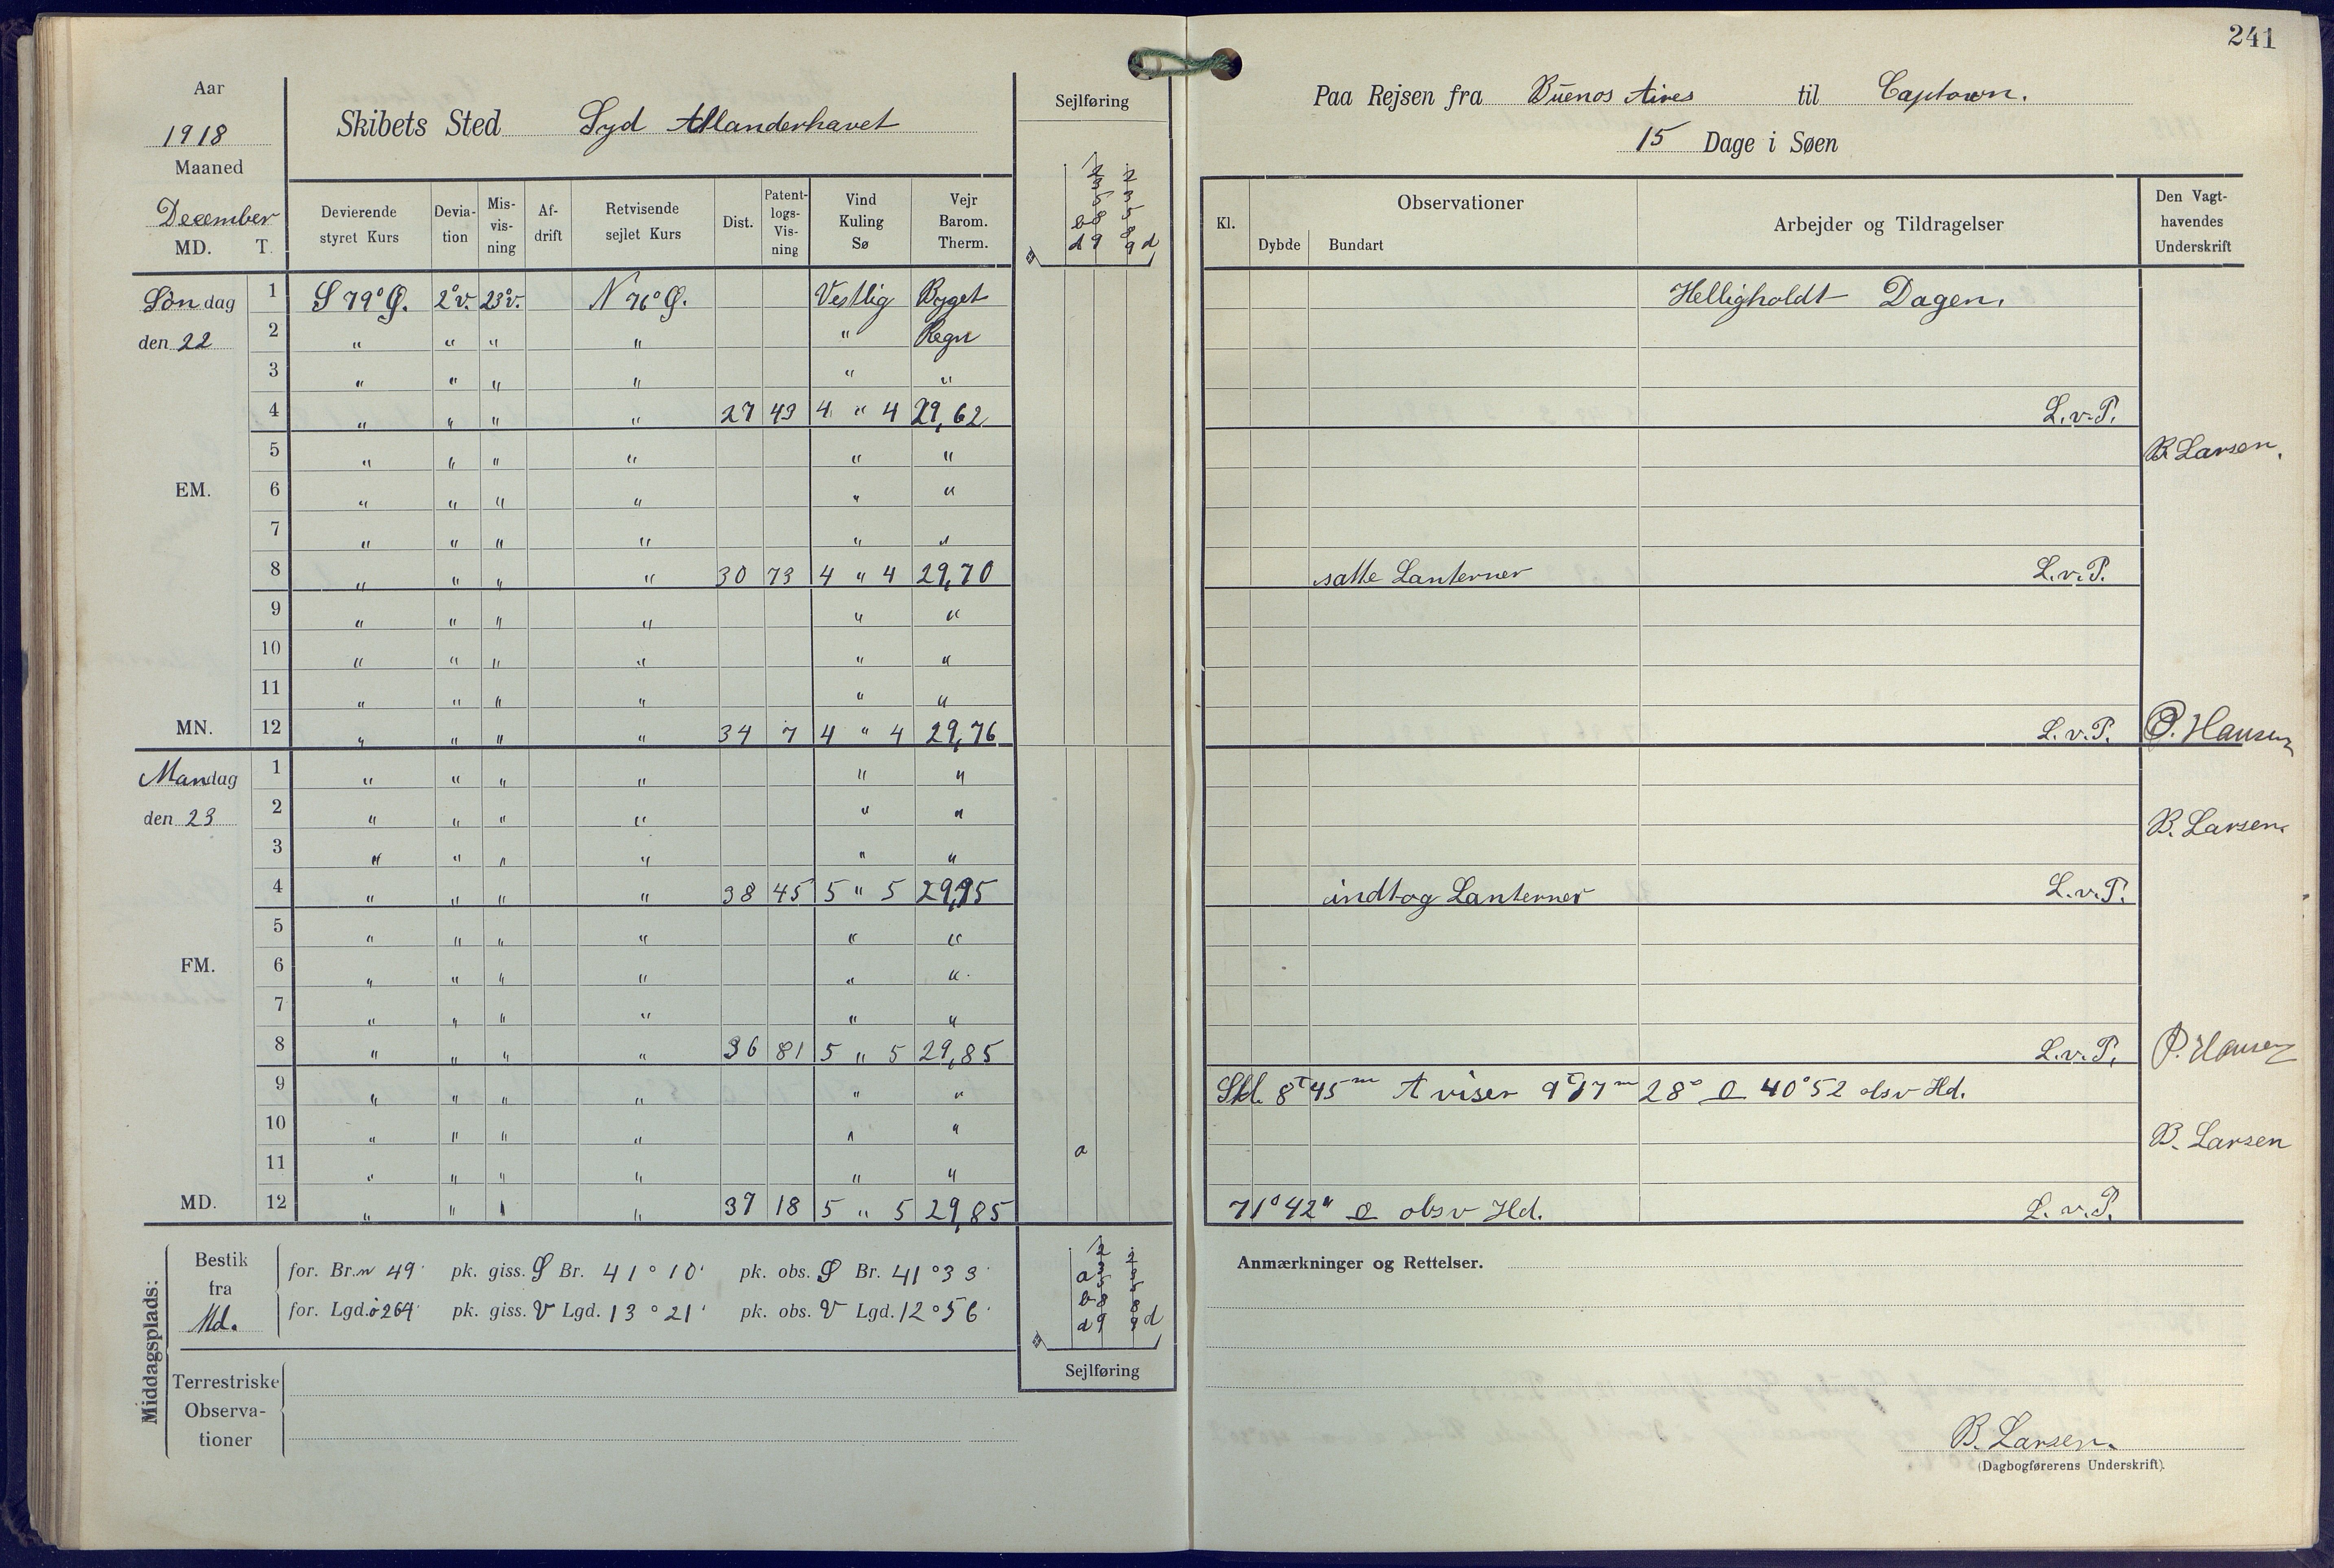 241
Aar
1918
Maaned
December
MD. T.
Skibets Sted Syd Atlanderhavet
Sejlføring
Paa Rejsen fra Buenos Aires til Captown.
15 Dage i Søen
Devierende styret Kurs
Devia-tion
Mis-vis-ning
Af-drift
Retvisende sejlet Kurs
Dist.
Patent-logs-Vis-ning
Vind Kuling Sø
Vejr Barom. Therm.
2 2
3 3
5 5
b 8 8
d 9 9 d
Kl.
Observationer
Dybde Bundart
Arbejder og Tildragelser
Den Vagt-havendes Underskrift
Søndag 1 S 79° Ø. 2°v. 23°v. N 76° Ø. Vestlig Byget Helligholdt Dagen.
den 22 2 " " " " " Regn
3 " " " " " "
4 " " " " 27 43 4 " 4 29,62 L.v.P.
5 " " " " " " B. Larsen.
EM. 6 " " " " " "
7 " " " " " "
8 " " " " 30 73 4 " 4 29,70 satte Lanterner L.v.P.
9 " " " " " "
10 " " " " " "
11 " " " " " "
MN. 12 " " " " 34 7 4 " 4 29,76 L.v.P. P. Hansen
Mandag 1 " " " " " "
den 23 2 " " " " " " B. Larsen.
3 " " " " " "
4 " " " " 38 45 5 " 5 29,95 indtog Lanterner L.v.P.
5 " " " " " "
FM. 6 " " " " " "
7 " " " " " "
8 " " " " 36 81 5 " 5 29,85 L.v.P. P. Hansen
9 " " " " " " Skl. 8 t 45 m A viser 9 t 17 m 28 s O 40°52 obsv Hd.
10 " " " " " " B. Larsen
11 " " " " " " a
MD. 12 " " " " 37 18 5 " 5 29,85 71°42" O obsv Hd. L.v.P.
Middagsplads:
Bestik fra Md.
for. Br. n 49' pk. giss. S Br. 41° 10' pk. obs. S Br. 41° 33'
for. Lgd. ø 264' pk. giss. V Lgd. 13° 21' pk. obs. V Lgd. 12° 56'
2 2
a 3 3
5 5
b 8 8
d 9 9 d
Sejlføring
Terrestriske Observa-tioner
Anmærkninger og Rettelser.
B. Larsen.
(Dagbogførerens Underskrift).